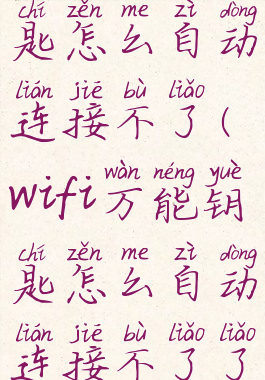 chí zěn me zì dòng
匙怎么自动
lián jiē bù liǎo
连接不了(
wàn néng yuè
wifi万能钥
chí zěn me zì dòng
匙怎么自动
lián jiē bù liǎo liǎo
连接不了了